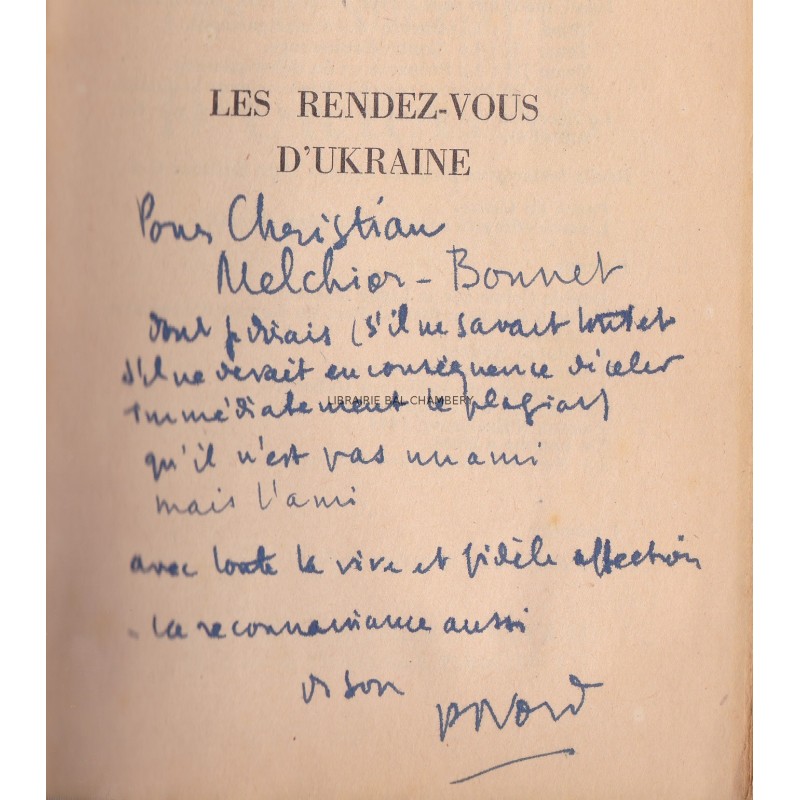 LES RENDEZ-VOUS
D'UKRAINE
Pour Christian
Melchior-Bonnet
dont je dirais (s'il ne savait tout et
s'il ne devait en conséquence déceler
immédiatement le plagiat)
qu'il n'est pas un ami
mais l'ami
avec toute la vive et fidèle affection
la reconnaissance aussi
de son
LIBRAIRIE BAL CHAMBERY